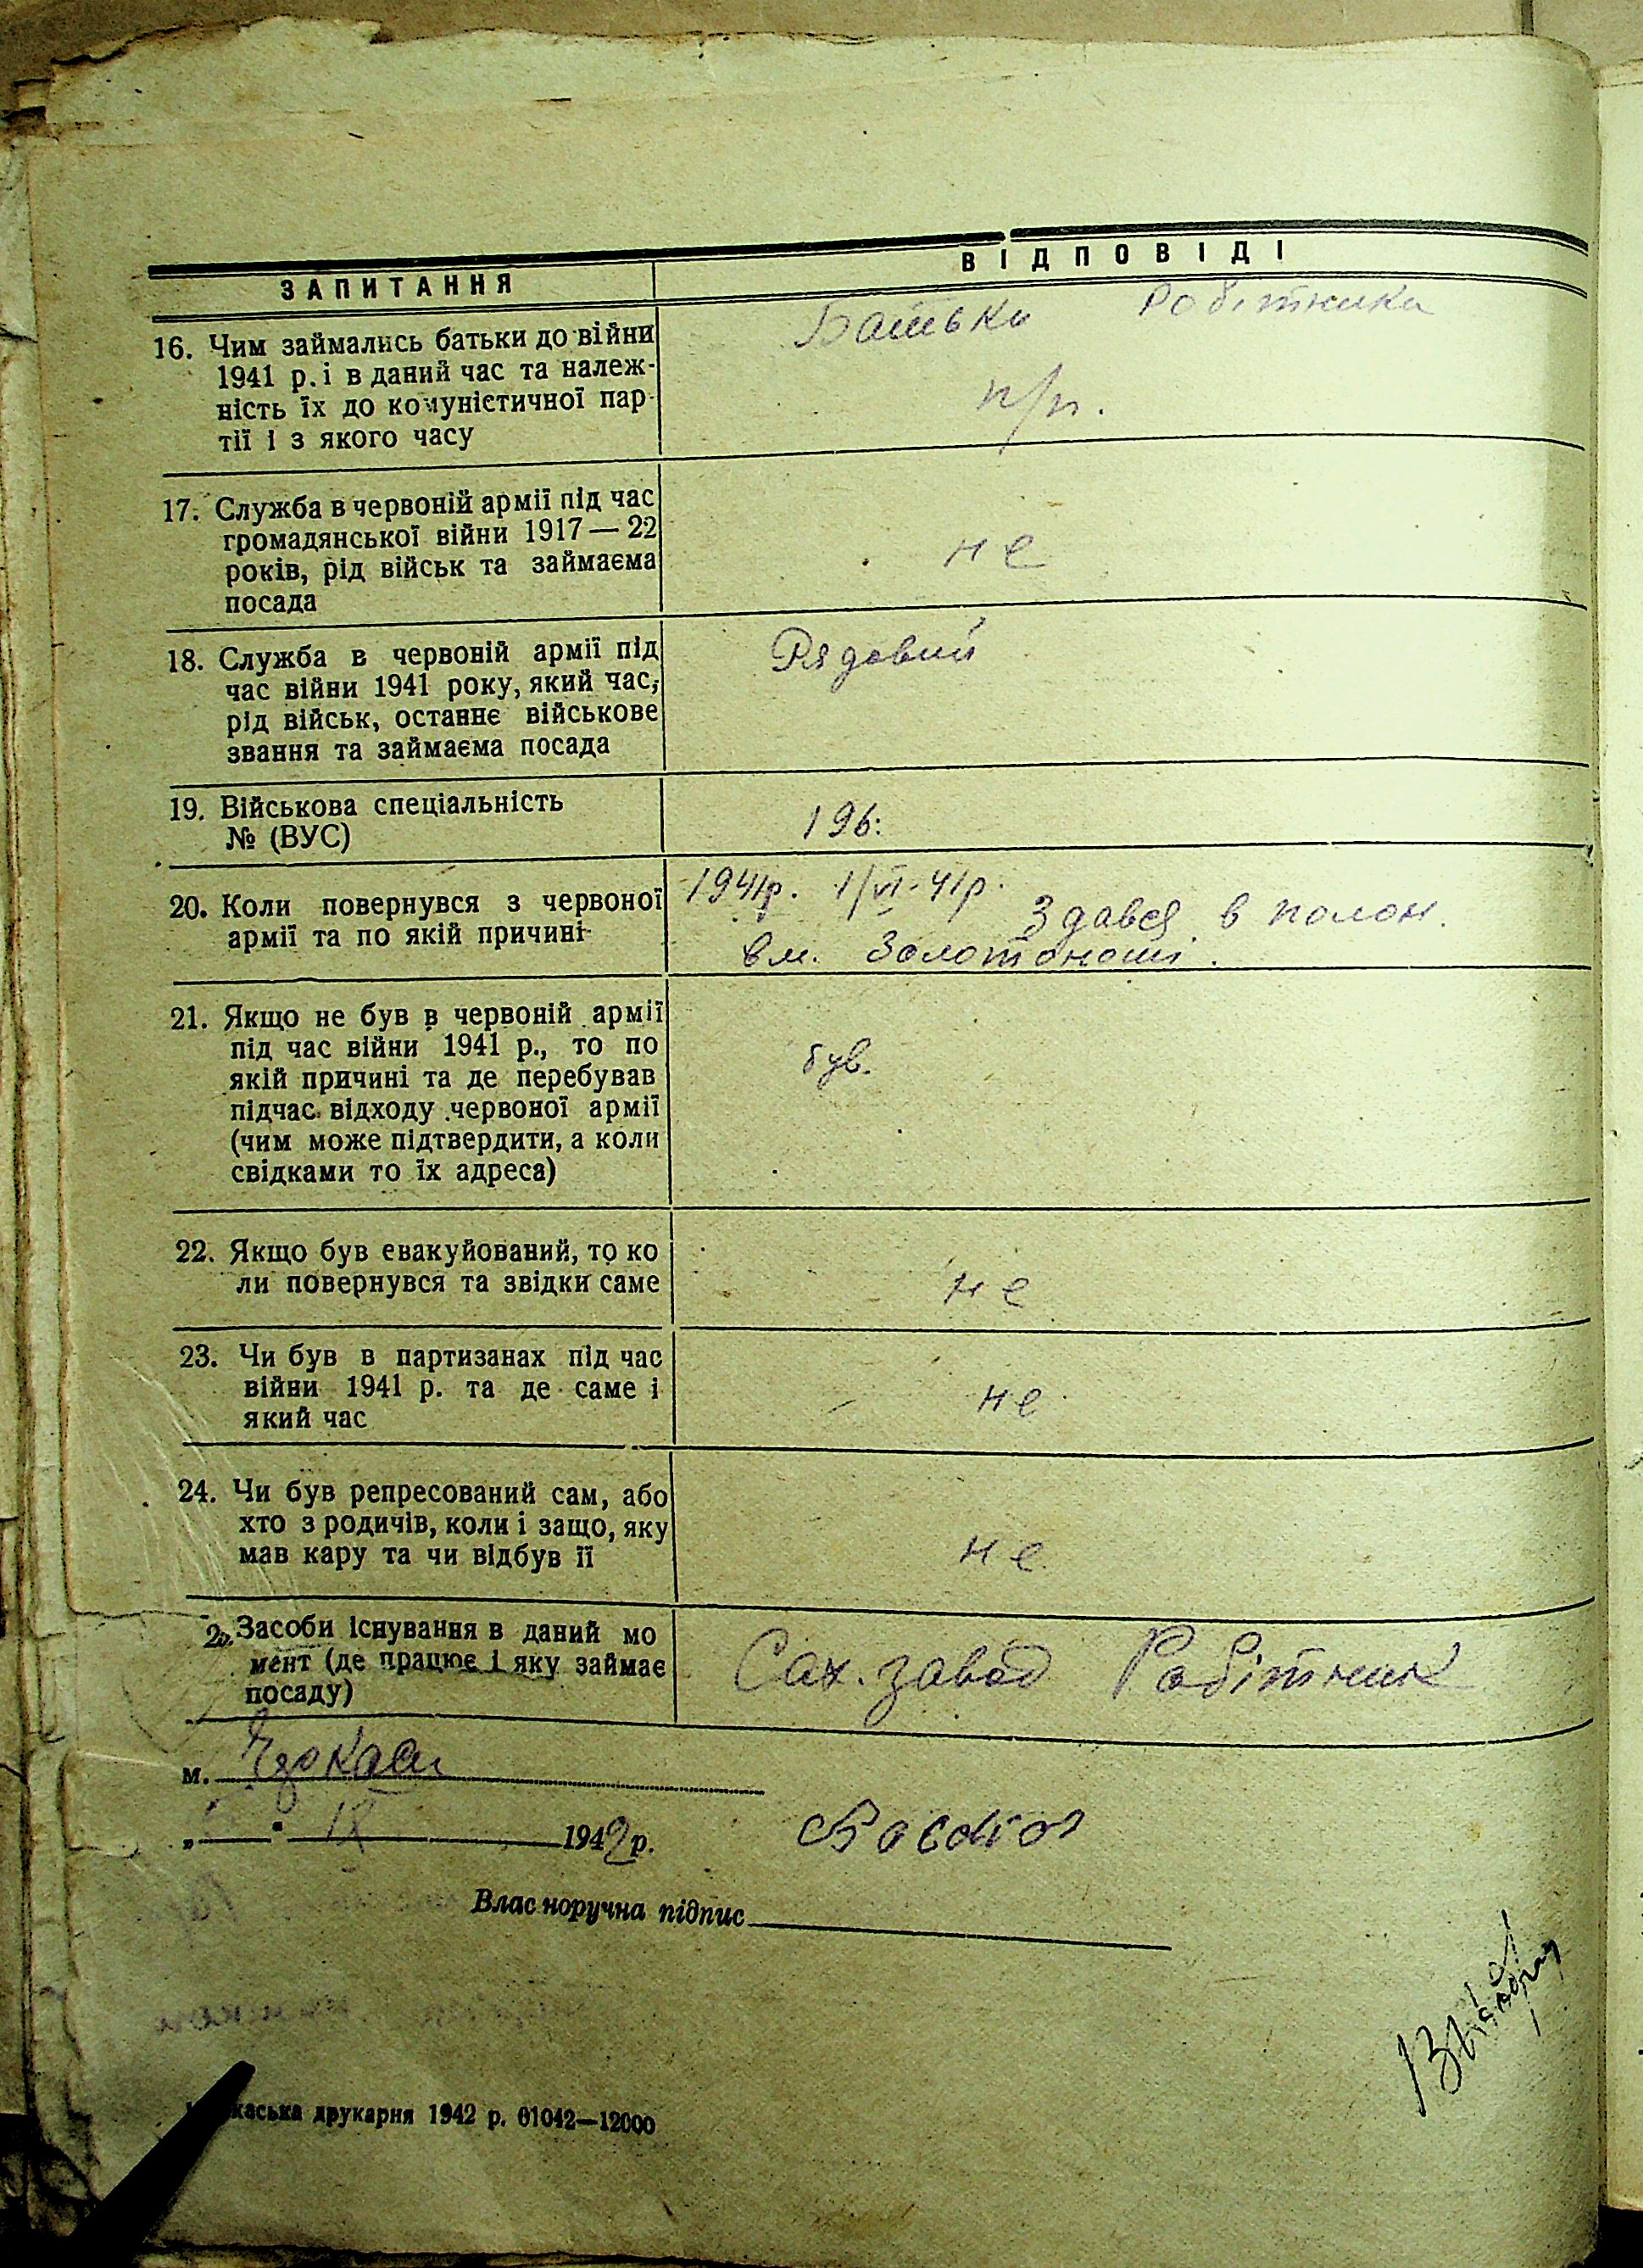 ЗАПИТАННЯ
ВІДПОВІДІ
16. Чим займались батьки до війни
1941 р. і в даний час та належ-
ність їх до комуністичної пар-
тії і з якого часу
Батьки робітники
п/п.
17. Служба в червоній армії під час
громадянської війни 1917 — 22
років, рід військ та займаєма
посада
не
18. Служба в червоній армії під
час війни 1941 року, який час,
рід військ, останнє військове
звання та займаєма посада
Рядовий
19. Військова спеціальність
№ (ВУС)
196.
20. Коли повернувся з червоної
армії та по якій причині
1941р. 1/VI-41р. Здався в полон.
в м. Золотоноші.
21. Якщо не був в червоній армії
під час війни 1941 р., то по
якій причині та де перебував
підчас відходу червоної армії
(чим може підтвердити, а коли
свідками то їх адреса)
був.
22. Якщо був евакуйований, то ко
ли повернувся та звідки саме
не
23. Чи був в партизанах під час
війни 1941 р. та де саме і
який час
не
24. Чи був репресований сам, або
хто з родичів, коли і защо, яку
мав кару та чи відбув її
не
Засоби існування в даний мо
мент (де працює і яку займає
посаду)
Сах. завод Робітник
м. Черкаси
„ " IX 1942 р.
Власноручна підпис
каська друкарня 1942 р. 01042—12000